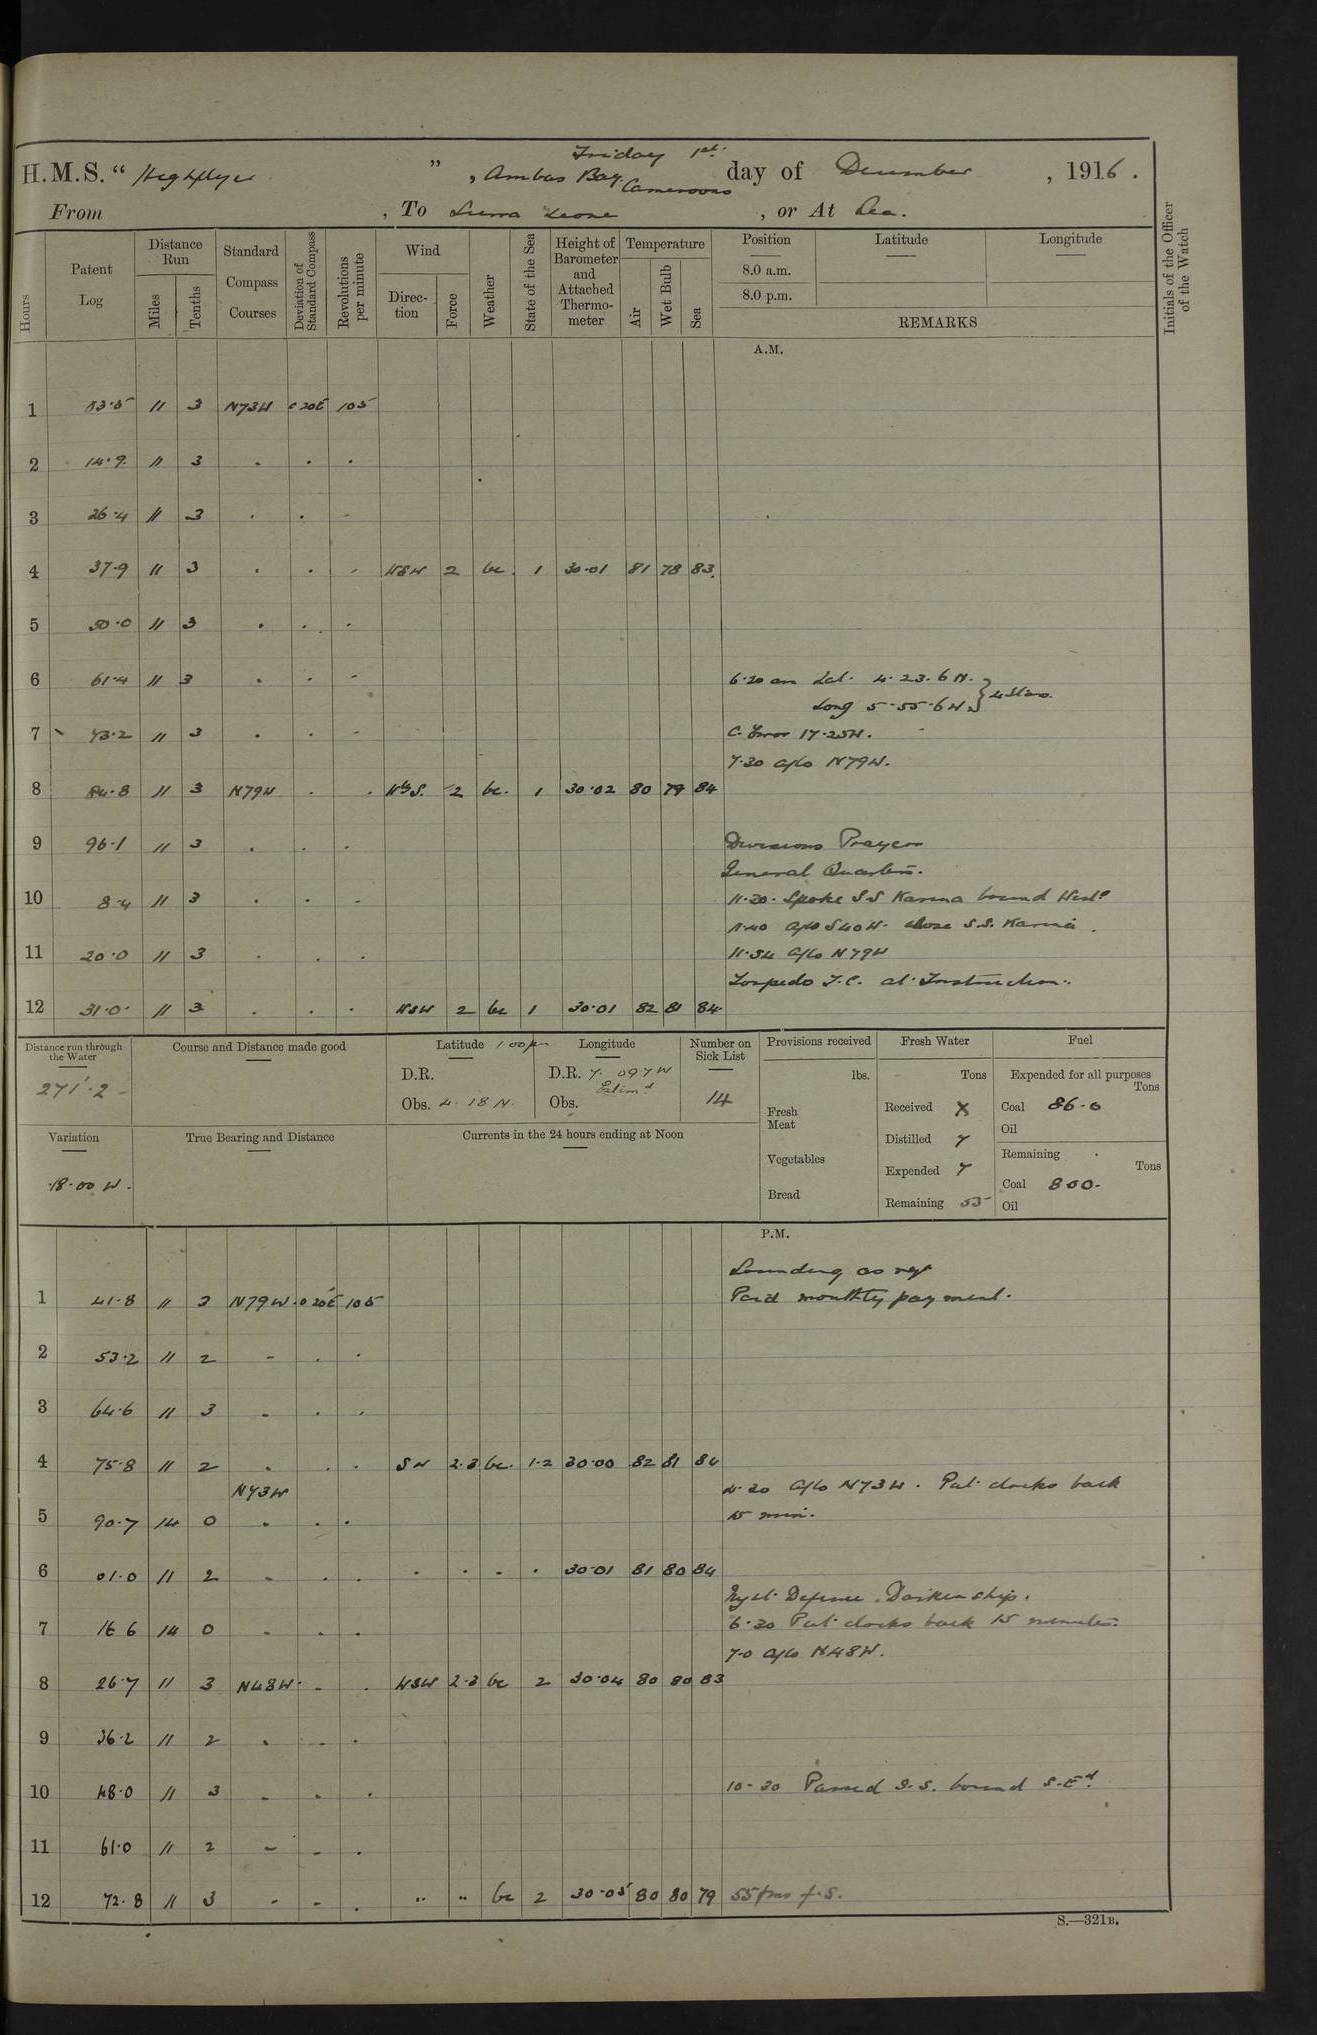 H.M.S. " Highflyer ", Ambas Bay. Cameroons Friday 1st. day of December, 1916.
From , To Sierra Leone , or At Sea.
Hours
Patent Log
Distance Run
Miles
Tenths
Standard Compass Courses
Deviation of Standard Compass
Revolutions per minute
Wind
Direction
Force
Weather
State of the Sea
Height of Barometer and Attached Thermometer
Temperature
Air
Wet Bulb
Sea
Position
Latitude
Longitude
8.0 a.m.
8.0 p.m.
REMARKS
Initials of the Officer of the Watch
A.M.
1 11 3 N73W 20E 105
2 14.9 11 3 . . .
3 26.4 11 3 . . -
4 37.9 11 3 . . - WSW 2 bc. 1 30.01 81 78 83.
5 50.0 11 3 . . -
6 61.4 11 3 . . -
6.20 am Lat. 4.23.6 N.
Long 5-55-6W. } 4 Stars.
7 73.2 11 3 . . -
C. Error 17.25W.
7.30 a/c N79W.
8 84.8 11 3 N79W . . WbS. 2 bc. 1 30.02 80 79 84
9 96.1 11 3 . . .
Divisions Prayers
General Quarters.
10 8.4 11 3 . . .
11.20. Spoke SS Karina bound Westd
11.40 a/c S40W. close S.S. Karina.
11 20.0 11 3 . . .
11.54 a/c N79W
Torpedo T.C. at Instruction.
12 31.0 11 3 . . . WSW 2 bc 1 30.01 82 81 84
Distance run through the Water
271'.2
Course and Distance made good
Latitude 1.00 pm Longitude
D.R. D.R. 7. 09 7 W
Obs. 4. 18 N. Obs. Estimd
Number on Sick List
14
Provisions received
lbs.
Fresh Meat
Vegetables
Bread
Fresh Water
Tons
Received X
Distilled 7
Expended 7
Remaining 55
Fuel
Expended for all purposes
Tons
Coal 86.0
Oil
Remaining
Tons
Coal 800.
Oil
Variation
18.00 W.
True Bearing and Distance
Currents in the 24 hours ending at Noon
P.M.
Sounding as req
1 41.8 11 3 N79W 20E 105
Paid monthly payment.
2 53.2 11 2 - . .
3 64.6 11 3 . . .
4 75.8 11 2 . . . SW 2.3 bc. 1.2 30.00 82 81 84
N73W
4.20 a/c N73W. Put clocks back
15 min.
5 90.7 14 0 . . .
6 01.0 11 2 . . . . . - . 30.01 81 80 84
Night Defence. Darken ship.
6.30 Put clocks back 15 minutes.
7 16 6 14 0 - . .
7-0 a/c N48W.
8 26.7 11 3 N48W. - . WSW 2.3 bc 2 30.04 80 80 83
9 36.2 11 2 . . .
10 48.0 11 3 . . .
10-30 Passed S.S. bound S-Ed.
11 61.0 11 2 - . .
12 72.8 11 3 - - . " " bc 2 30.05 80 80 79 55 fms f.S.
S.—321B.